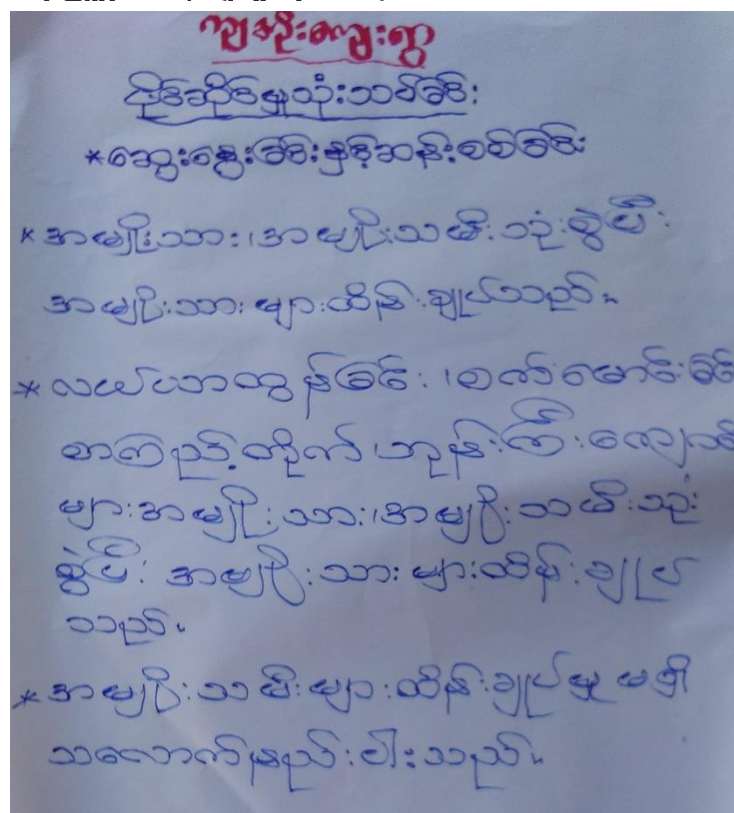 ကျအိုးကျေးရွာ
ပိုင်ဆိုင်မှုသုံးသပ်ခြင်း
*ဆွေးနွေးခြင်းနှင့်ဆန်းစစ်ခြင်း
*အမျိုးသား၊အမျိုးသမီးသုံးစွဲပြီး
အမျိုးသားများထိန်းချုပ်သည်။
*လယ်ယာထွန်ခြင်း၊စက်မောင်းခြင်
စာကြည့်တိုက်၊ဘုန်းကြီးကျောင်
များအမျိုးသား၊အမျိုးသမီးသုံး
စွဲပြီး အမျိုးသားများထိန်းချုပ်
သည်။
*အမျိုးသမီးများထိန်းချုပ်မှုမရှိ
သလောက်နည်းပါးသည်။